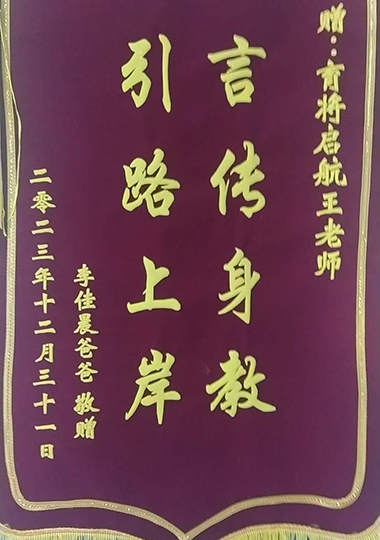 赠：育将启航王老师
言传身教
引路上岸
李佳晨爸爸 敬赠
二零二三年十二月三十一日